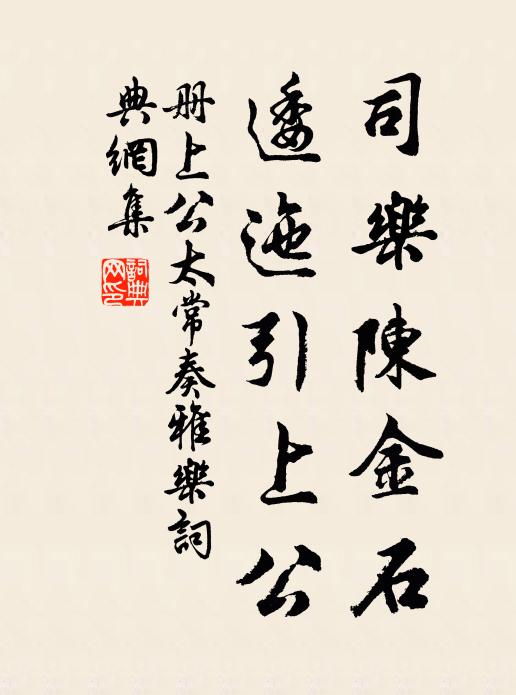 司樂陳金石
逶迤引上公
册上公太常奏雅樂詞
典網集
詞典網印